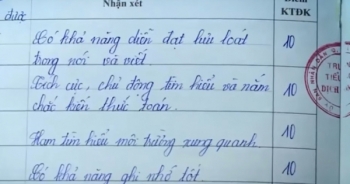 Nhận xét
Điểm
KTĐK
được
Có khả năng diễn đạt lưu loát 10
trong nói và viết.
Tích cực, chủ động tìm hiểu và nắm 10
chắc kiến thức toán.
Ham tìm hiểu môi trường xung quanh 10
Có khả năng ghi nhớ tốt. 10
TRƯ
TIỂ
DỊCH